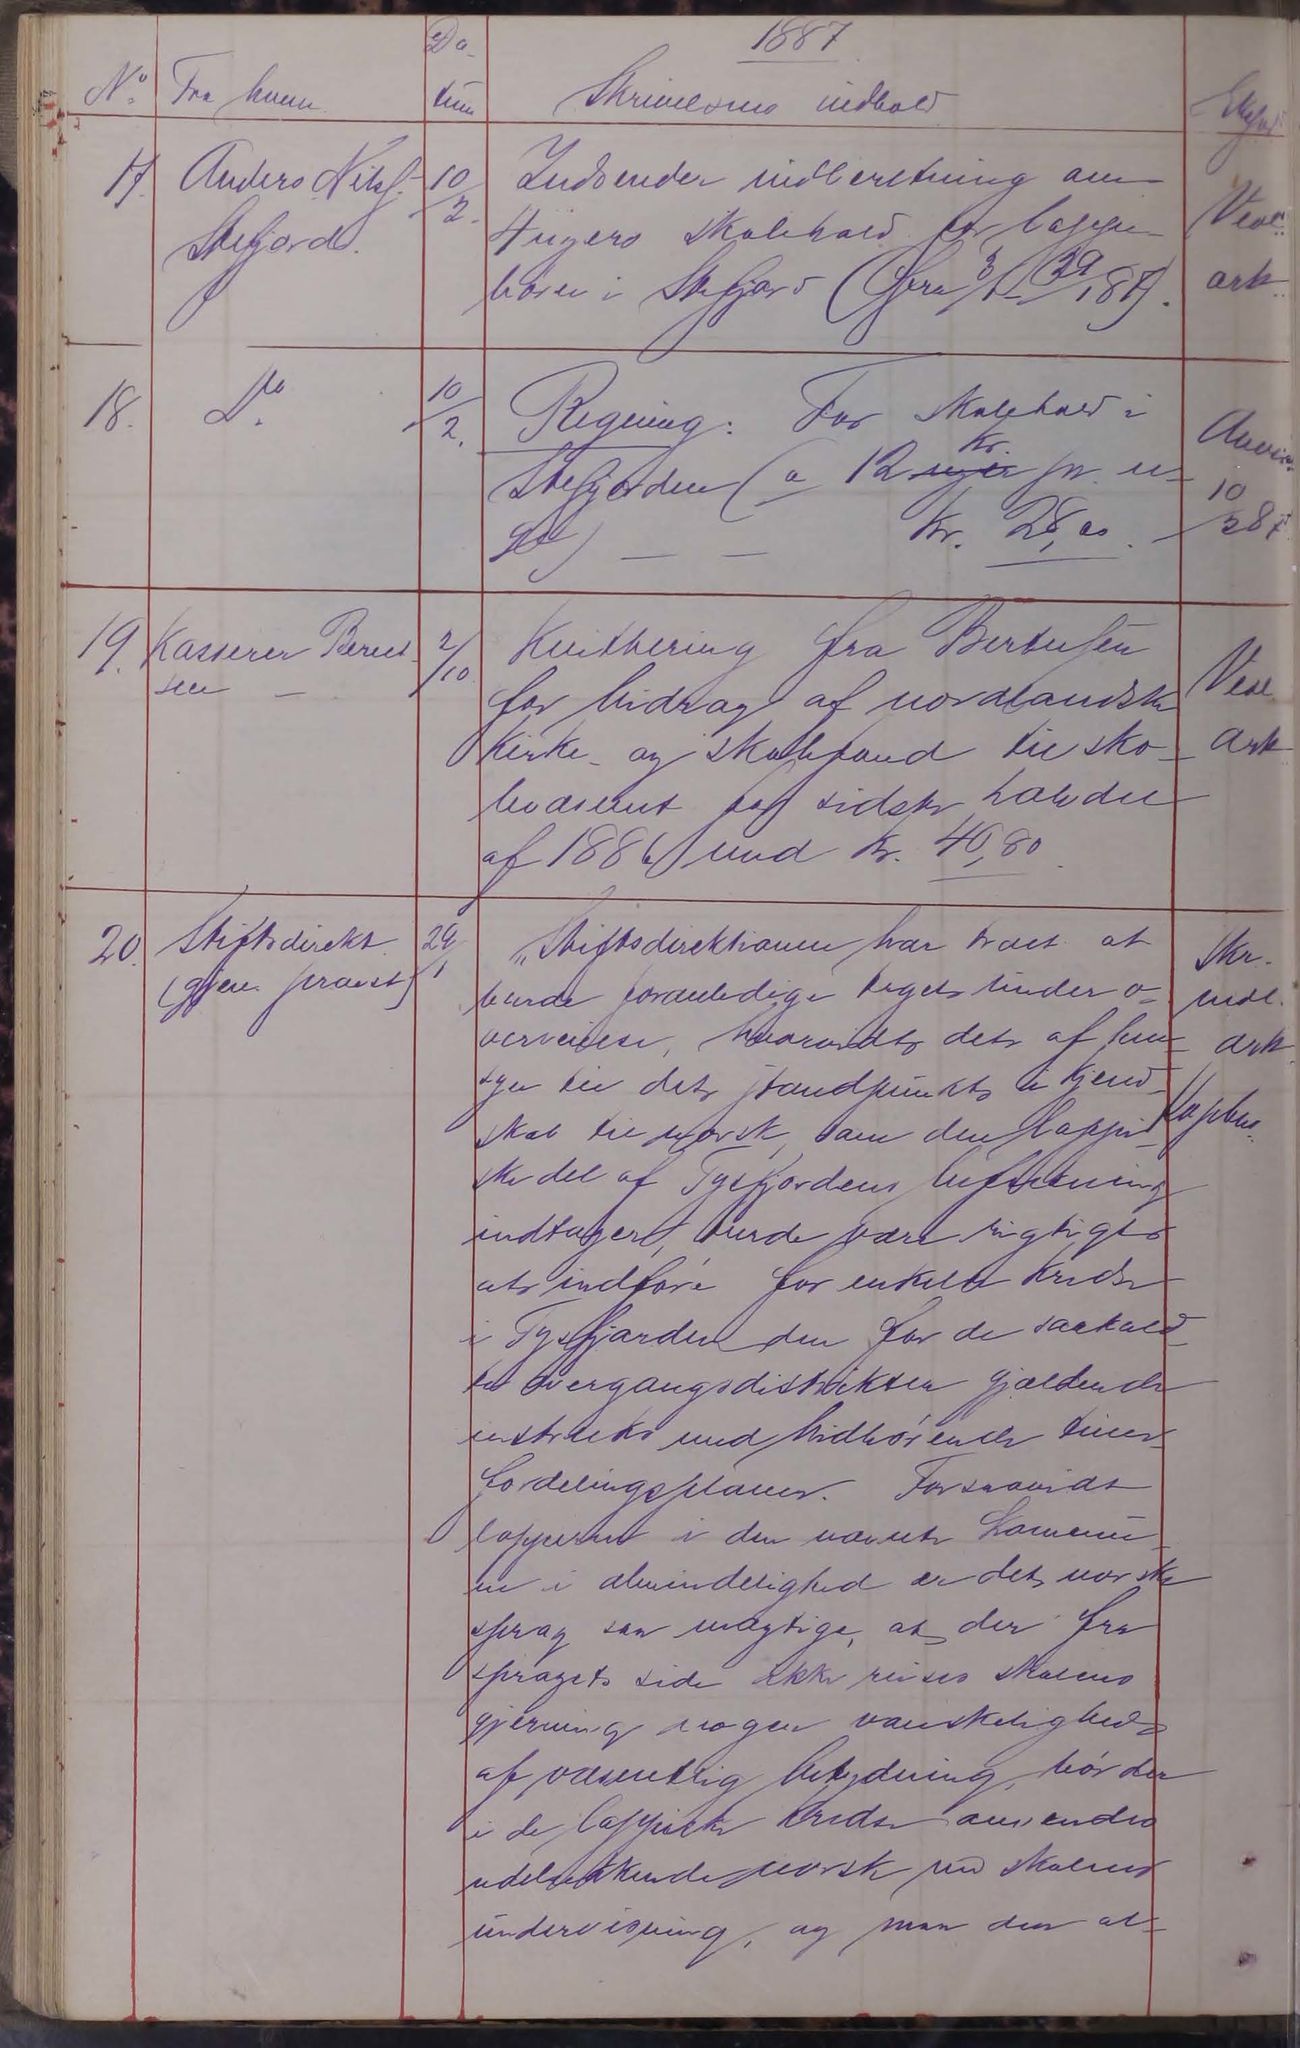 1887
No. Fra hvem Da-tum Skrivelsens indhold Exped.
17. Anders Nils. 10/2. Indsender indberetning om
Stefjord. 4 ugers skolehold for lappe-
børn i Stefjord (fra 3/1 - 29/1 87). Vedl. ark.
18. Do. 10/2. Regning. For skolehold i
Stefjorden (a 12 kr. pr. u-
ge) — — Kr. 28,00. Anvist 10/2 87
19. Kasserer Bernt- 2/10 Kvittering fra Berntsen
sen — for bidrag af nordlandske
kirke- og skolefond til sko-
levæsenet for sidste halvdel
af 1886 med kr. 40,80. Vedl. ark
20. Stiftsdirekt. 29/1 "Stiftsdirektionen har troet at
(gjen. provst) burde foranledige taget under o-
verveielse, hvorvidt det af hen-
syn til det standpunkt i kjend-
skab til norsk, som den lappi-
ske del af Tysfjordens befolkning
indtager, burde være rigtigt
at indføre for enkelte kredse
i Tysfjorden den for de saakald-
te overgangsdistrikter gjældende
instruks med hidhørende times-
fordelingsplaner. Forsaavidt
lapperne i den nævnte kommu-
ne i almindelighed er det norske
sprog saa mægtige, at der fra
sprogets side ikke reises skolens
gjerning nogen vanskelighed
af væsentlig betydning, bør der
i de lappiske kredse anvendes
udelukkende norsk ved skolens
undervisning, og maa den al-
Skr.
indl.
ark.